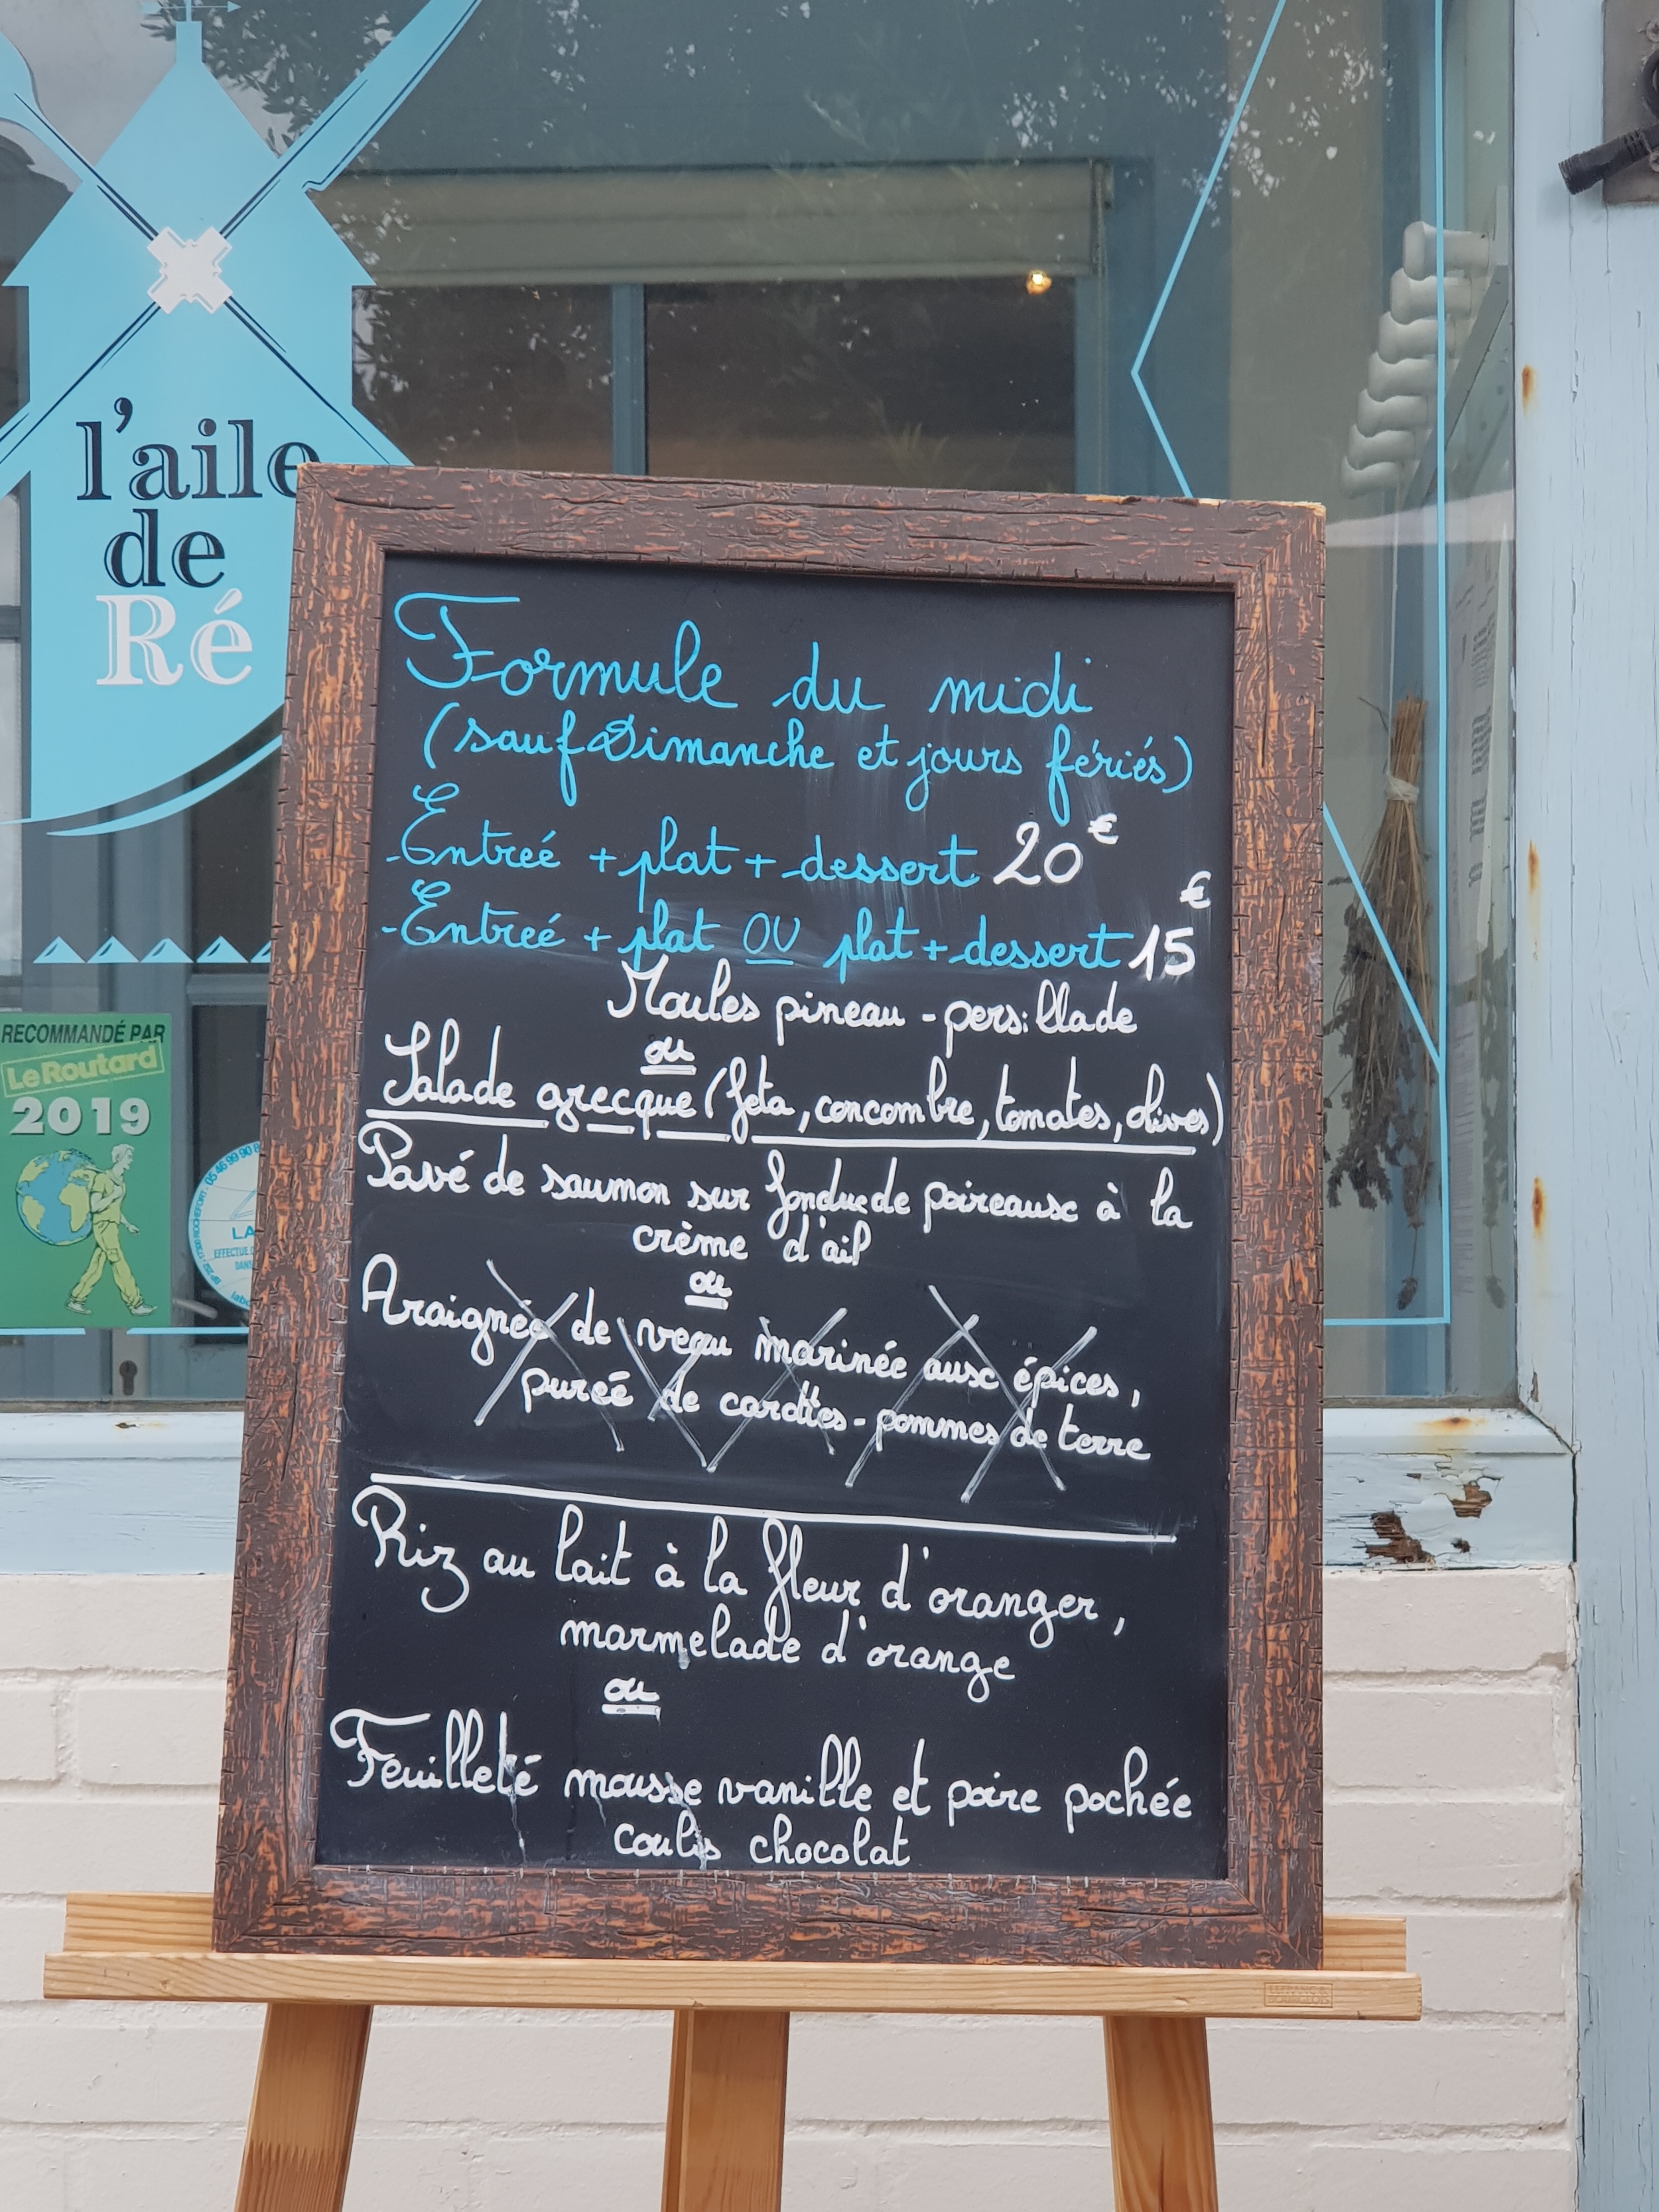 l'aile
de
Ré
RECOMMANDÉ PAR
Le Routard
2019
Formule du midi
(sauf Dimanche et jours fériés)
-Entreé + plat + dessert 20€
-Entreé + plat OU plat + dessert 15€
Moules pineau - persillade
ou
Salade grecque (feta, concombre, tomates, olives)
Pavé de saumon sur fondue de poireaux à la
crème d'ail
ou
Araignée de veau marinée aux épices,
pureé de carottes - pommes de terre
Riz au lait à la fleur d'oranger,
marmelade d'orange
ou
Feuilleté mousse vanille et poire pochée
coulis chocolat